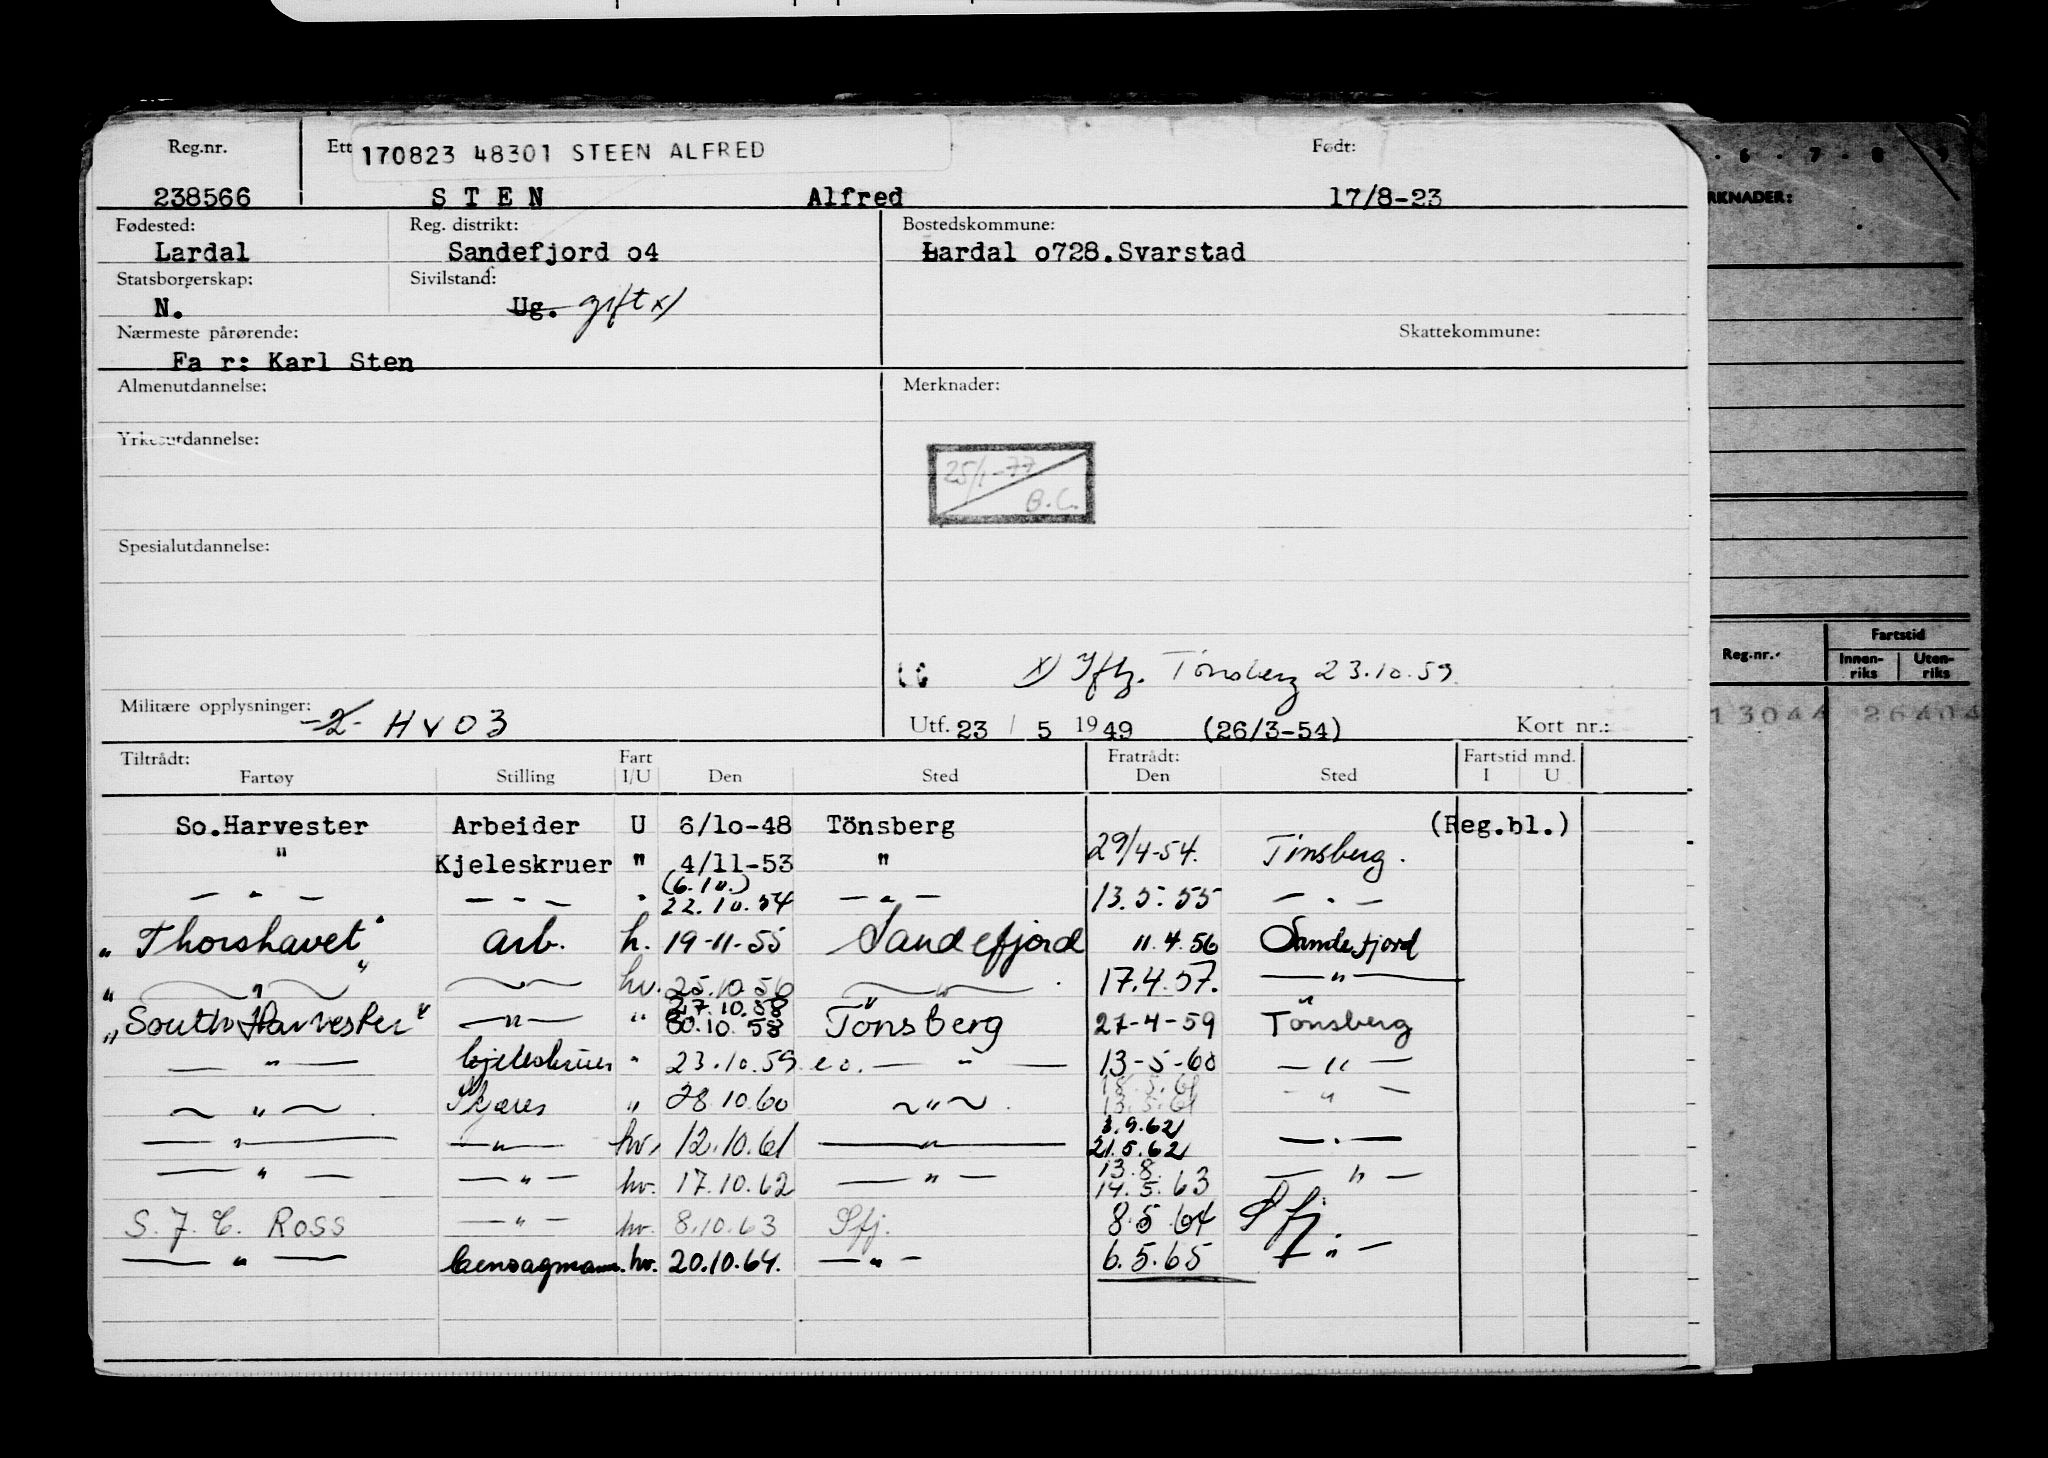 Reg.nr. Ett 170823 48301 STEEN ALFRED Født:
238566 S T E N Alfred 17/8-23
Fødested: Reg. distrikt: Bostedskommune:
Lardal Sandefjord o4 Lardal o728.Svarstad
Statsborgerskap: Sivilstand:
N. Ug. gift x)
Nærmeste pårørende: Skattekommune:
Fa r: Karl Sten
Almenutdannelse: Merknader:
Yrkesutdannelse:
25/1-77
B.C.
Spesialutdannelse:
x) Iflg. Tönsberg 23.10.59
Militære opplysninger: -2- HV03
Utf. 23 / 5 1949 (26/3-54) Kort nr.:
Tiltrådt: Fart Fratrådt: Fartstid mnd.
Fartøy Stilling I/U Den Sted Den Sted I U
So.Harvester Arbeider U 6/lo-48 Tönsberg (Reg.bl.)
" Kjeleskruer " 4/11-53 " 29/4-54. Tönsberg.
(6.10.)
— " — — " — " 22.10.54 — " — 13.5.55 — " —
"Thorshavet" arb. h. 19-11-55 Sandefjord 11.4.56 Sandefjord
" — " — " — " — hv. 25.10.56 — " — 17.4.57. — " —
27.10.58
"South Harvester" — " — " 30.10.58 Tönsberg 27-4-59 Tönsberg
— " — kjeleskruer " 23.10.59 e.o. — " — 13-5-60 — " —
18.5.61
— " — Skjærer " 28 10.60 — " — 13.5.61 — " —
3.9.62
— " — — " — hv. 12.10.61 — " — 21.5.62 — " —
13.8.
— " — — " — hv. 17.10.62 — " — 14.5.63 — " —
S. J. C. Ross — " — hv. 8.10.63 Sfj. 8.5.64 Sfj.
— " — hv. 20.10.64. — " — 6.5.65 — " —
6 . 7 . 8 . 9
RKNADER:
Reg.nr. Fartstid
Innen-riks Uten-riks
13044 26404